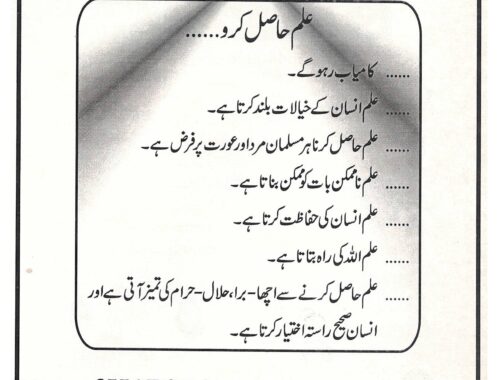 علم حاصل کرو......
...... کامیاب رہو گے۔
...... علم انسان کے خیالات بلند کرتا ہے۔
...... علم حاصل کرنا ہر مسلمان مرد اور عورت پر فرض ہے۔
...... علم ناممکن بات کو ممکن بناتا ہے۔
...... علم انسان کی حفاظت کرتا ہے۔
...... علم اللہ کی راہ بتاتا ہے۔
...... علم حاصل کرنے سے اچھا-برا، حلال-حرام کی تمیز آتی ہے اور
انسان صحیح راستہ اختیار کرتا ہے۔